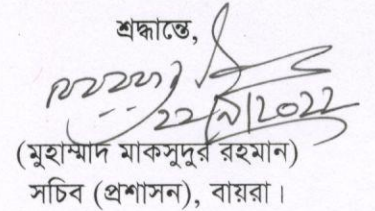 শ্রদ্ধান্তে,
২২/৯/২০২২
(মুহাম্মাদ মাকসুদুর রহমান)
সচিব (প্রশাসন), বায়রা।